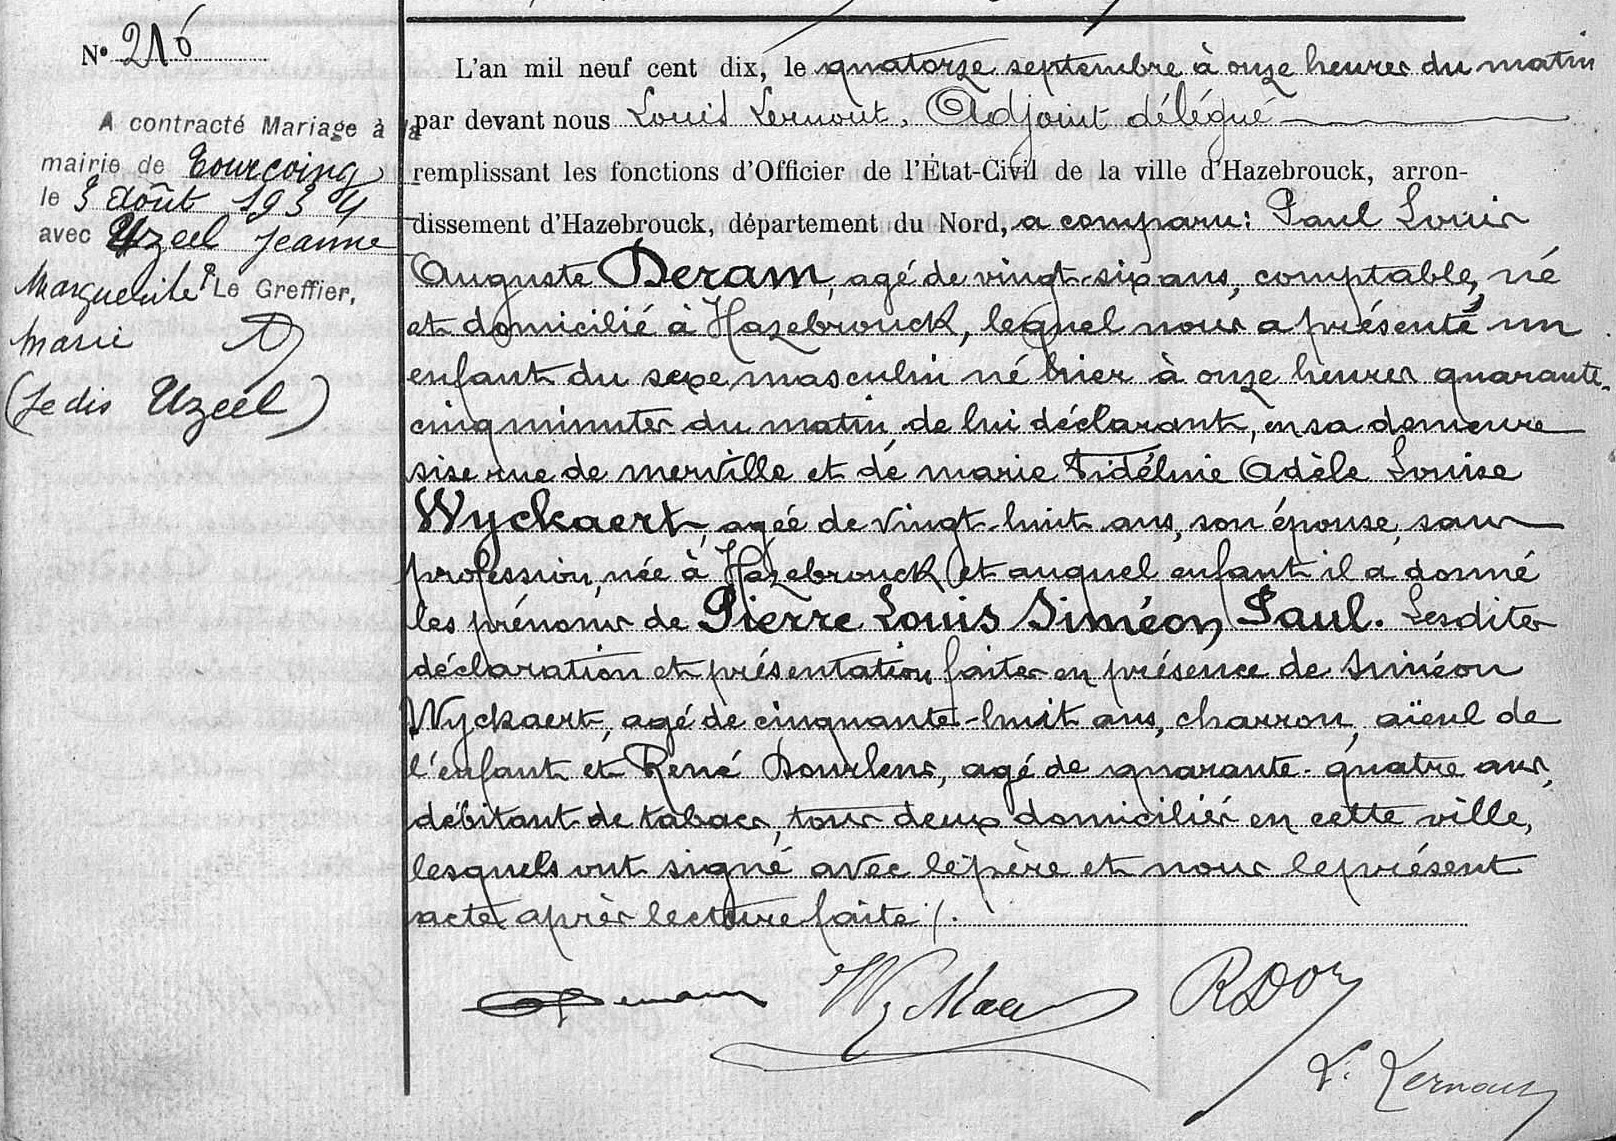 N° 216
A contracté Mariage à la
mairie de Tourcoing
le 3 Août 1934
avec Uzeel Jeanne
Marguerite Le Greffier,
Marie
(Je dis Uzeel)
L'an mil neuf cent dix, le quatorze septembre à onze heures du matin
par devant nous Louis Lernout, Adjoint délégué
remplissant les fonctions d'Officier de l'État-Civil de la ville d'Hazebrouck, arron-
dissement d'Hazebrouck, département du Nord, a comparu: Paul Louis
Auguste Deram, agé de vingt-six ans, comptable, né
et domicilié à Hazebrouck, lequel nous a présenté un
enfant du sexe masculin né hier à onze heures quarante-
cinq minutes du matin, de lui déclarant, en sa demeure
sise rue de merville et de marie Fidéline Adèle Louise
Wyckaert, agée de vingt-huit ans, son épouse, sans
profession, née à Hazebrouck et auquel enfant il a donné
les prénoms de Pierre Louis Siméon Paul. Lesdites
déclaration et présentation faites en présence de Siméon
Wyckaert, agé de cinquante-huit ans, charron, aïeul de
l'enfant et René Dourlens, agé de quarante-quatre ans,
débitant de tabacs, tous deux domiciliés en cette ville,
lesquels ont signé avec le père et nous le présent
acte après lecture faite /.
L. Lernout